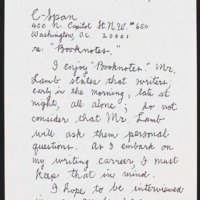 C-Span
400 N. Capitol St. N.W. #650
Washington, DC 20001
re: "Booknotes."
I enjoy "Booknotes." Mr.
Lamb states that writers,
early in the morning, late at
night, all alone, do not
consider that Mr. Lamb
will ask them personal
questions. As I embark on
my writing career, I must
keep that in mind.
I hope to be interviewed